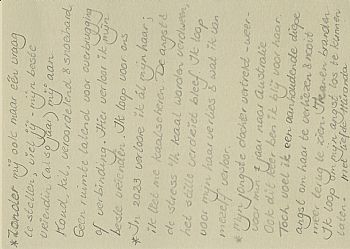 * Zonder mij ook maar één vraag
te stellen, viel jij - mijn beste
vriendin (als gaaf) mij aan.
Koud, kil, veroordelend & snoeihard.
Geen ruimte latend voor overbrugging
of verbinding. Hier verloor ik mijn
beste vriendin. Ik loop voor ons
* In 2023 verloor ik ál mijn haar;
ik liet me kaalscheren. De angst &
de stress 'ik kaal worden' verdween,
het stille verdriet bleef. Ik loop
voor mijn haarverlies & wat ik van
mezelf verloor.
* Mijn jongste dochter vertrekt - weer -
voor min. 1 jaar naar Australië
Ook dit keer ben ik blij voor haar.
Toch voel ik een aanhoudende diepe
angst om haar te verliezen & nooit
meer terug te zien. Tranen branden
Ik loop om mijn angst los te kunnen
laten. Met liefde, Miranda